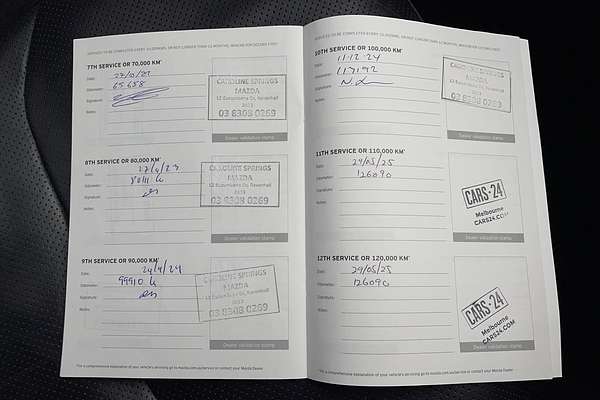 SERVICES TO BE COMPLETED EVERY 10,000KMS, OR NOT LONGER THAN 12 MONTHS, WHICHEVER OCCURS FIRST
7TH SERVICE OR 70,000 KM*
Date:
Odometer: 65658
Signature:
Notes:
CAROLINE SPRINGS
MAZDA
12 Eucumbene Dr, Ravenhall
3023
03 8308 0269
Dealer validation stamp
8TH SERVICE OR 80,000 KM*
Date: 17/4/23
Odometer:
Signature:
Notes:
CAROLINE SPRINGS
MAZDA
12 Eucumbene Dr, Ravenhall
3023
03 8308 0269
Dealer validation stamp
9TH SERVICE OR 90,000 KM*
Date: 24/4/24
Odometer: 99910 k
Signature:
Notes:
CAROLINE SPRINGS
MAZDA
12 Eucumbene Dr, Ravenhall
3023
03 8308 0269
Dealer validation stamp
*For a comprehensive explanation of your vehicle's servicing go to mazda.com.au/service or contact your Mazda Dealer
SERVICES TO BE COMPLETED EVERY 10,000KMS, OR NOT LONGER THAN 12 MONTHS, WHICHEVER OCCURS FIRST
10TH SERVICE OR 100,000 KM*
Date: 11-12-24
Odometer: 117192
Signature:
Notes:
CAROLINE SPRINGS
MAZDA
12 Eucumbene Dr, Ravenhall
3023
03 8308 0269
Dealer validation stamp
11TH SERVICE OR 110,000 KM*
Date: 29/05/25
Odometer: 126090
Signature:
Notes:
CARS24
Melbourne
CARS24.COM
Dealer validation stamp
12TH SERVICE OR 120,000 KM*
Date: 29/05/25
Odometer: 126090
Signature:
Notes:
CARS24
Melbourne
CARS24.COM
Dealer validation stamp
*For a comprehensive explanation of your vehicle's servicing go to mazda.com.au/service or contact your Mazda Dealer